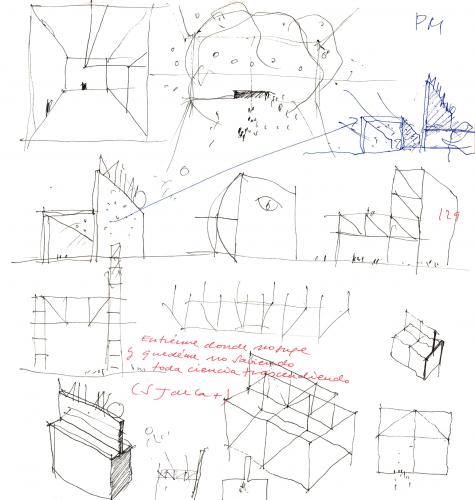 PM
129
Entréme donde no supe
y quedéme no sabiendo
toda ciencia trascendiendo
(S J de la +)